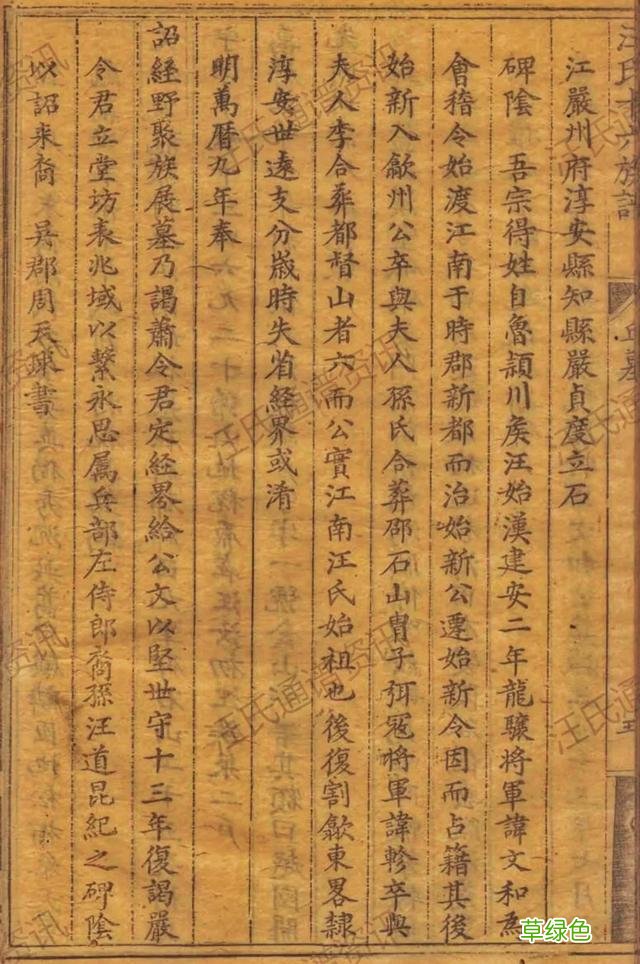 汪氏十六族譜
丘墓
五
江嚴州府淳安縣知縣嚴貞度立石
碑陰　吾宗得姓自魯潁川矦汪始漢建安二年龍驤將軍諱文和爲
會稽令始渡江南于時郡新都而治始新公遷始新令因而占籍其後
始新入歙州公卒與夫人孫氏合葬邵石山曾子弭冠將軍諱軫卒與
夫人李合葬都督山者六而公實江南汪氏始祖也後復割歙東畧隸
淳安世遠支分歲時失省經界或淆
明萬曆九年奉
詔經野聚族展墓乃謁蕭令君定經界給公文以堅世守十三年復謁嚴
令君立堂坊表兆域以繫永思属兵部左侍郎裔孫汪道昆紀之碑陰
以詔来裔　吳郡周天球書
汪氏通谱资讯
草绿色